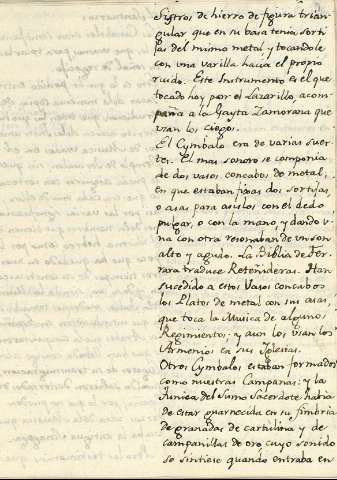 Sistros de hierro de figura trian-
gular que en su basa tenia sorti-
jas del mismo metal y tocandole
con una varilla hacia el propio
ruido. Este Instrumento es el que
tocado hoy por el Lazarillo, acom-
paña a la Gayta Zamorana que
vsan los ciegos.
El Cymbalo era de varias suer-
tes. El mas sonoro se componia
de dos vasos concabos de metal,
en que estaban fijas dos sortijas,
o asas para asirlos con el dedo
pulgar, o con la mano, y dando v-
na con otra resonaban de un son
alto y agudo. La Biblia de Fer-
rara traduce Reteñideras. Han
sucedido a estos Vasos concabos
los Platos de metal con sus asas,
que toca la Musica de algunos
Regimientos; y aun los vsan los
Armenios en sus Iglesias.
Otros Cymbalos estaban formados
como nuestras Campanas: y la
Tunica del Sumo Sacerdote habia
de estar guarnecida en su fimbria
de granadas de cartulina y de
campanillas de oro cuyo sonido
se sintiese quando entraba en